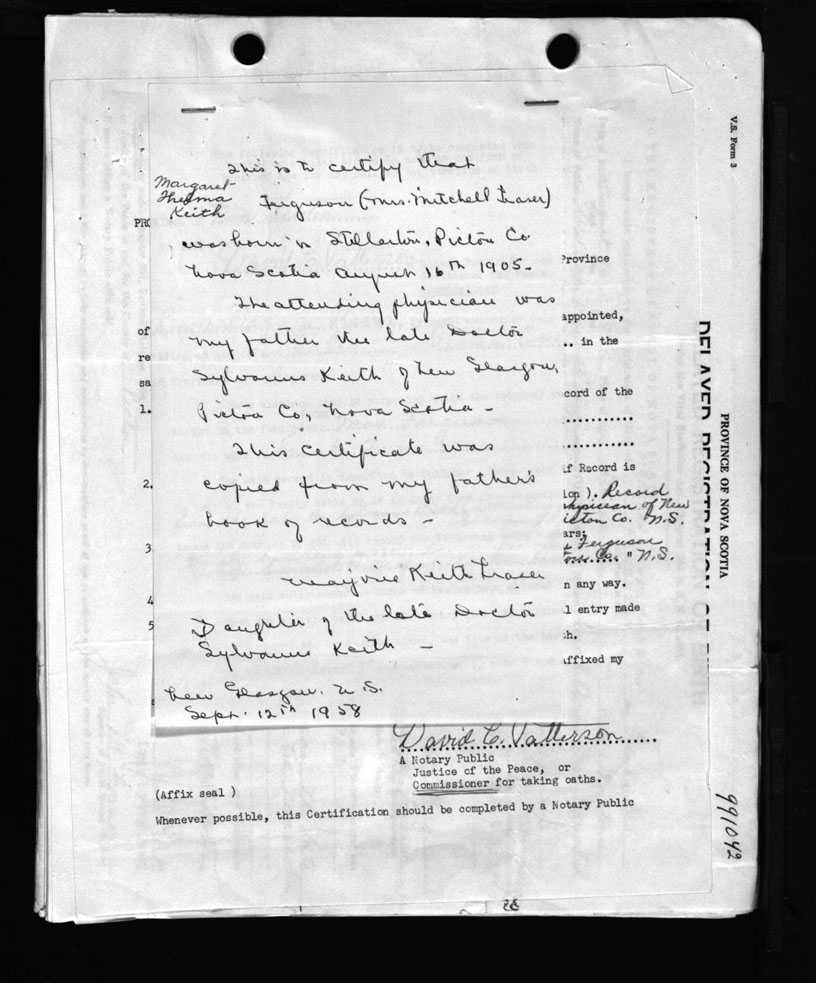 This is to certify that
Margaret
Thelma
Keith
Ferguson (Mrs. Mitchell Fraser)
was born in Stellarton, Pictou Co.
Nova Scotia August 16th 1905-
The attending physician was
my father the late Doctor
Sylvanus Keith of New Glasgow,
Pictou Co, Nova Scotia -
This certificate was
copied from my father's
book of records -
Marjorie Keith Fraser
Daughter of the late Doctor
Sylvanus Keith -
New Glasgow. N.S.
Sept. 12th 1958
PRO
of
re
sa
1.
2.
3
4
5
Province
appointed,
.. in the
cord of the
if Record is
ion ). Record
physician of New
ictou Co. N.S.
ars;
Ferguson
Co. " N.S.
n any way.
l entry made
h.
affixed my
David C. Patterson
A Notary Public
Justice of the Peace, or
Commissioner for taking oaths.
(Affix seal )
Whenever possible, this Certification should be completed by a Notary Public
V.S. Form 3
PROVINCE OF NOVA SCOTIA
DELAYED REGISTRATION OF
991042